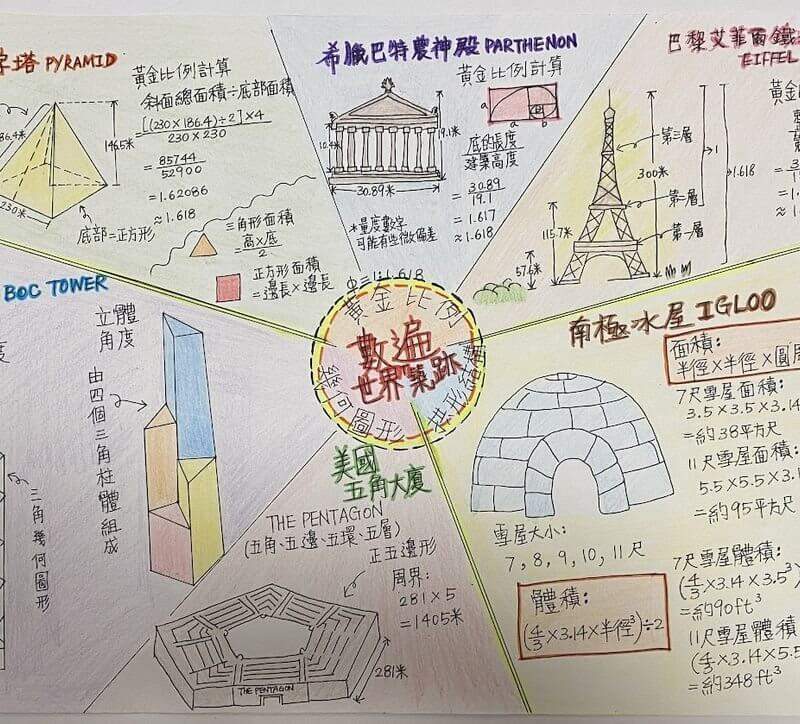 字塔 PYRAMID
黃金比例計算
斜面總面積÷底部面積
=[(230×186.4)÷2]×4
230×230
=85744
52900
=1.62086
≈1.618
86.4米
146.5米
230米
底部=正方形
三角形面積
=高×底
2
正方形面積
=邊長×邊長
希臘巴特農神殿 PARTHENON
黃金比例計算
a
a
b
10.4米
19.1米
30.89米
底的長度
建築高度
=30.89
19.1
=1.617
≈1.618
*量度數字
可能有些微偏差
巴黎艾菲爾鐵
EIFFEL
黃金
第三層
第二層
第一層
1
1.618
300米
115.7米
57.6米
=1.6
≈1.6
BOC TOWER
立體角度
由四個三角柱體組成
三角幾何圖形
φ=1:1.618
黃金比例
數遍
世界築跡
幾何圖形
美國
五角大廈
THE PENTAGON
(五角、五邊、五環、五層)
正五邊形
周界:
281×5
=1405米
281米
THE PENTAGON
南極冰屋 IGLOO
面積:
半徑×半徑×圓周
7尺雪屋面積:
3.5×3.5×3.14
=約38平方尺
11尺雪屋面積:
5.5×5.5×3.1
=約95平方尺
雪屋大小:
7, 8, 9, 10, 11尺
體積:
(4/3×3.14×半徑³)÷2
7尺雪屋體積:
(4/3×3.14×3.5³)
=約90ft³
11尺雪屋體積
(4/3×3.14×5.5
=約348ft³